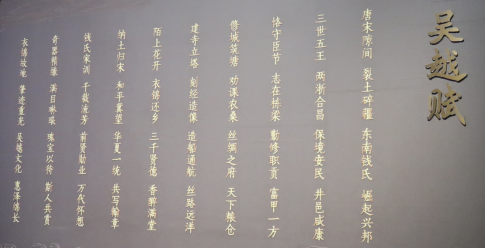 吴越赋
唐宋隙间 裂土碎疆 东南钱氏 崛起兴邦
三世五王 两浙合昌 保境安民 井邑咸康
恪守臣节 志在拱梁 勤修职贡 富甲一方
修城筑塘 劝课农桑 丝绸之府 天下粮仓
建寺立塔 刻经造像 造船通航 丝路远洋
陌上花开 衣锦还乡 三千贤儒 香醉满堂
纳土归宋 和平冀望 华夏一统 共写翰章
钱氏家训 千载流芳 前贤勋业 万代怀想
奇器精缘 满目琳琅 瑰宝以待 斯人共赏
衣锦故地 肇迹重光 吴越文化 惠泽绵长